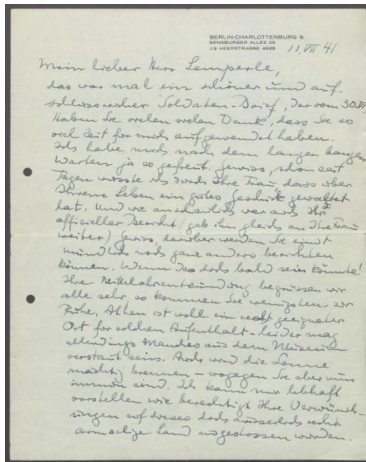 BERLIN-CHARLOTTENBURG 9,
SENSBURGER ALLEE 25
J 9 HEERSTRASSE 4609
11. VII 41
Mein lieber Herr Lemperle,
das war mal ein schöner und auf-
schlussreicher Soldaten-Brief, der vom 30. VI.
Haben Sie vielen vielen Dank, dass Sie so
viel Zeit für mich aufgewendet haben.
Ich habe mich nach dem langen bangen
Warten ja so gefreut. Gewiss, schon seit
Tagen wusste ich durch Ihre Frau, dass über
Ihrem Leben ein gutes Geschick gewaltet
hat. Und wie anschaulich war auch Ihr
offizieller Bericht (gab ihn gleich an Ihre Frau
weiter) Gewiss, darüber werden Sie einst
mündlich noch ganz anders berichten
können. Wenn das doch bald sein könnte!
Ihre Mittelohrentzündung begrüssen wir
alle sehr, so kommen Sie wenigstens zur
Ruhe. Athen ist wohl ein recht geeigneter
Ort für solchen Aufenthalt - leider mag
allerdings manches aus dem Museum
verstaut sein. Auch wird die Sonne
mächtig brennen - wogegen Sie aber nun
immun sind. Ich kann mir lebhaft
vorstellen wie berechtigt Ihre Verwünsch-
ungen auf dieses doch äusserlich recht
armselige Land ausgestossen wurden.